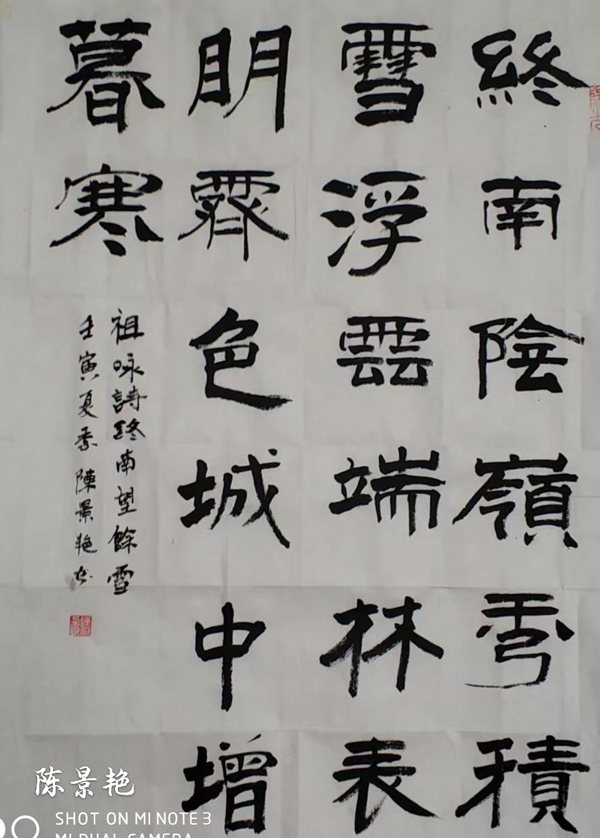 終南陰嶺秀積
雪浮雲端林表
明霽色城中增
暮寒
祖咏詩終南望餘雪
壬寅夏季陳景艳书
陈景艳
SHOT ON MI NOTE 3
MI DUAL CAMERA